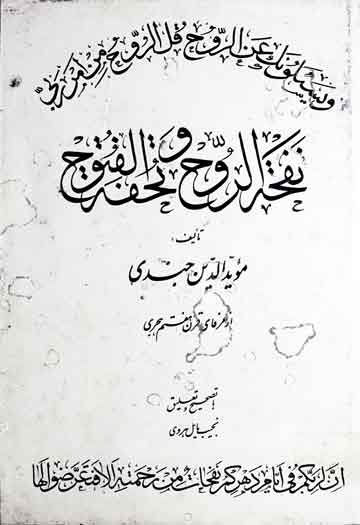 ويسئلونك عن الروح قل الروح من أمر ربي
نفحة الروح و تحفة الفتوح
تألیف:
مؤیدالدین جندی
از عرفای قرن هفتم هجری
با تصحیح و تعلیق
نجیب مایل هروی
ان لربكم فی ايام دهركم نفحات من رحمته الا فتعرضوا لها